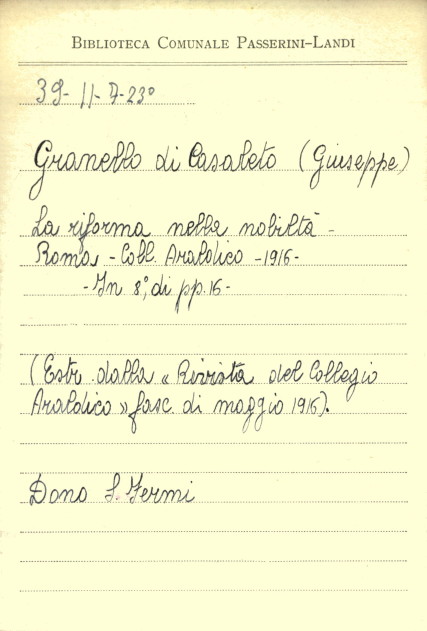 BIBLIOTECA COMUNALE PASSERINI-LANDI
39-11-7-23°
Granello di Casaleto (Giuseppe)
La riforma nella nobiltà -
Roma - Coll. Araldico - 1916 -
- In 8°, di pp. 16 -
(Estr. dalla « Rivista del Collegio
Araldico » fasc. di maggio 1916).
Dono S. Fermi